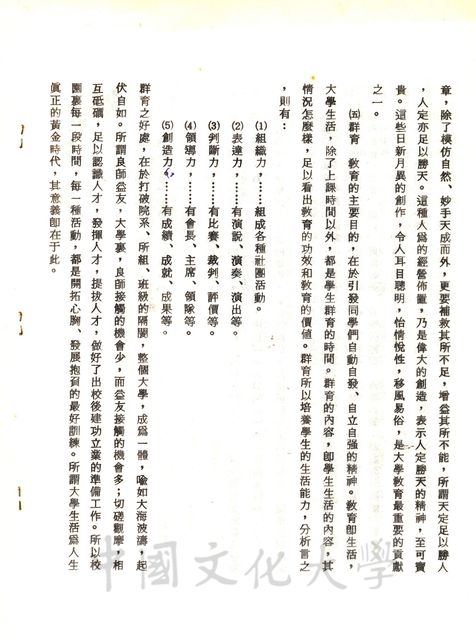 章，除了模仿自然、妙手天成而外，更要補救其所不足，增益其所不能，所謂天定足以勝人
，人定亦足以勝天。這種人爲的經營佈置，乃是偉大的創造，表示人定勝天的精神，至可寶
貴。這些日新月異的創作，令人耳目聰明，怡情悅性，移風易俗，是大學教育最重要的貢獻
之一。
㈤群育　教育的主要目的，在於引發同學們自動自發、自立自强的精神。教育卽生活，
大學生活，除了上課時間以外，都是學生群育的時間。群育的內容，卽學生生活的內容，其
情況怎麼樣，足以看出教育的功效和教育的價値。群育所以培養學生的生活能力，分析言之
，則有：
⑴組織力，……組成各種社團活動。
⑵表達力，……有演說、演奏、演出等。
⑶判斷力，……有比賽、裁判、評價等。
⑷領導力，……有會長、主席、領隊等。
⑸創造力，……有成績、成就、成果等。
群育之好處，在於打破院系、所組、班級的隔閡，整個大學，成爲一體，喩如大海波濤，起
伏自如。所謂良師益友，大學裏，良師接觸的機會少，而益友接觸的機會多；切磋觀摩，相
互砥礪，足以認識人才，發揮人才，提拔人才，做好了出校後建功立業的準備工作。所以校
園裏每一段時間，每一種活動，都是開拓心胸、發展抱負的最好訓練。所謂大學生活爲人生
眞正的黃金時代，其意義卽在于此。
中國文化大學